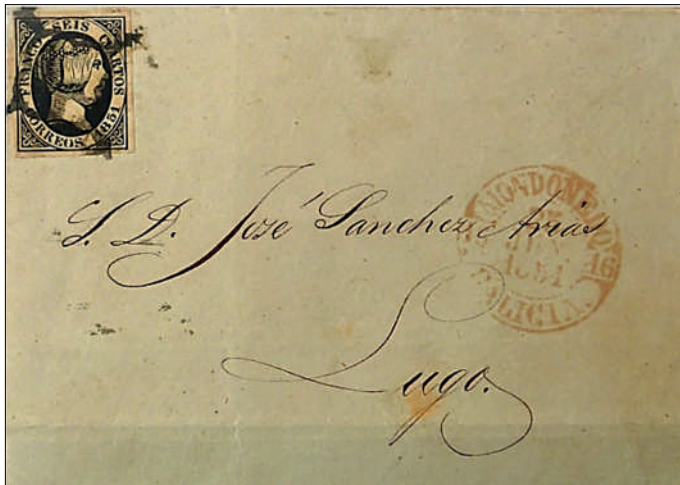 FRANCO SEIS CUARTOS
CORREOS 1851
S. D. José Sanchez Arias
Lugo.
MONDOÑEDO
1851
16
GALICIA.